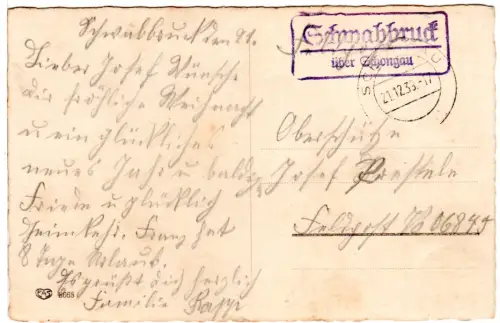 Schwabbruck den 21.
Lieber Josef Wünsche
Dir fröhliche Weihnacht
u ein glückliches
neues Jahr u baldig
Friede u glücklich
heimkehr. Franz hat
8 Tage Urlaub.
Es grüßt dich herzlich
Familie Rapp
Schwabbruck
über Schongau
21.12.39.-17
Oberschütze
Josef Prestele
Feldpost No 06845